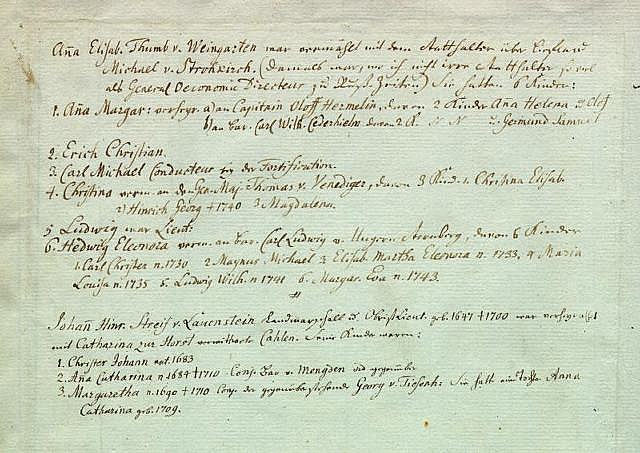 Aña Elisab. Thumb v. Weingarten war vermählt mit dem Statthalter über
Michael v. Strokkirch. (damals war, wo ich nicht irre Statthalter so viel
als General Oeconomie Directeur zu Zeiten) Sie hatten 6 Kinder:
1. Aña Margar: verheyr. a) an Capitain Oloff Hermelin, davon 2 Kinder Aña Helena Olof
b) an bar. Carl Wilh. Cederhielm davon 2 K. N N Germund Samuel
2. Erich Christian.
3. Carl Michael Conducteur bey der Fortification.
4. Christina verm. an den Gen. Maj. Thomas v. Venediger, davon 3 Kind. 1. Christina Elisab.
2) Hinrich Georg † 1740 3 Magdalena.
5 Ludwig war Lieut:
6. Hedwig Eleonora verm. an bar. Carl Ludwig v. Ungern Sternberg, davon 6 Kinder
1. Carl Christer n. 1730 2 Magnus Michael 3 Elisab. Martha Eleonora n. 1733, 4 Maria
Louisa n. 1735 5. Ludwig Wilh. n 1741 6. Margar. Eva n. 1743.
Johañ Hinr. Streif v. Lauenstein Landmarschall u. ObristLieut. geb. 1647 † 1700 war verheyrathet
mit Catharina zur Horst verwittwete Cahlen. Seine Kinder waren:
1. Christer Johann nat. 1683
2. Aña Catharina n 1684 † 1710 Conj. Bar v. Mengden vid gegenüber
3. Margaretha n. 1690 † 1710 Conj. der gegenüberstehende Georg v. Tiesenh: Sie hatte eine Tochter Anna
Catharina geb. 1709.